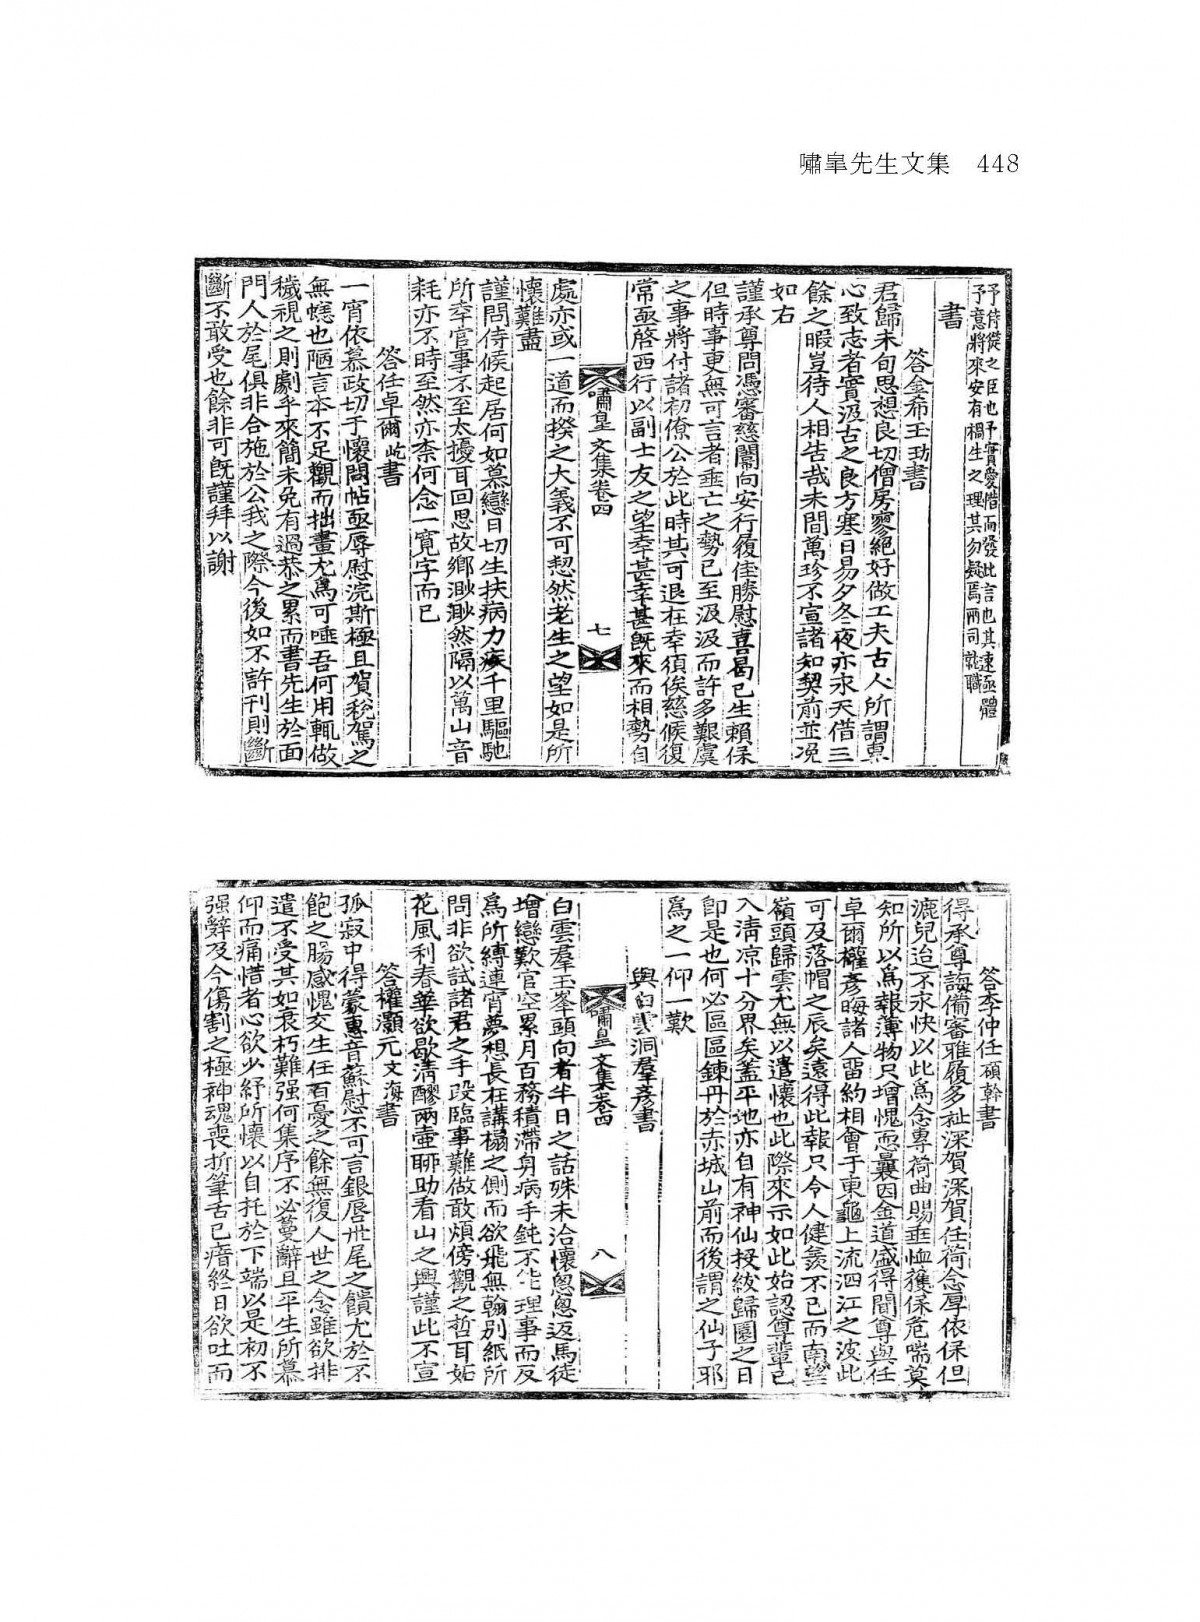 嘯皐先生文集 448
予侍從之臣也予實愛惜而發此言也其速極體
予意將來安有櫚生之理其勿疑焉兩司就職
書
答金希玉玏書
君歸未旬思想良切僧房寥絶好做工夫古人所謂專
心致志者實汲古之良方寒日易夕冬夜亦永天借三
餘之暇豈待人相告哉未間萬珍不宣諸知契前並况
如右
謹承尊問憑審慈闈向安行履佳勝慰喜曷已生賴保
但時事更無可言者垂亡之勢已至汲汲而許多艱虞
之事將付諸初僚公於此時其可退在幸須俟慈候復
常亟啓西行以副士友之望幸甚幸甚旣來而相勢自
嘯皐文集卷四 七
處亦或一道而揆之大義不可恝然老生之望如是所
懷難盡
謹問侍候起居何如慕戀日切生扶病力疾千里驅馳
所幸官事不至太擾耳回思故鄕渺渺然隔以萬山音
耗亦不時至然亦柰何念一寬字而已
答任卓爾屹書
一宵依慕政切于懷問帖亟辱慰浣斯極且賀稅駕之
無蟋也陋言本不足觀而拙畫尤爲可唾吾何用輒做
穢視之則劇乎來簡未免有過恭之累而書先生於面
門人於尾俱非合施於公我之際今後如不許刊則斷
斷不敢受也餘非可旣謹拜以謝
答李仲任碩幹書
得承尊誨備審雅履多祉深賀深賀任荷念厚依保但
漉兒迨不永快以此爲念專荷曲賜垂恤獲保危喘莫
知所以爲報薄物只增愧恧曩因金道盛得聞尊與任
卓爾權彥晦諸人留約相會于東龜上流泗江之波此
可及落帽之辰矣遠得此報只令人健羨不已而南望
嶺頭歸雲尤無以遣懷也此際來示如此始認尊輩已
入淸凉十分界矣蓋平地亦自有神仙投紱歸園之日
卽是也何必區區鍊丹於赤城山前而後謂之仙子耶
爲之一仰一歎
與白雲洞羣彥書
嘯皐文集卷四 八
白雲羣玉峯頭向者半日之話殊未洽懷悤悤返馬徒
增戀歎官空累月百務積滯身病手鈍不能理事而反
爲所縛連宵夢想長在講榻之側而欲飛無翰別紙所
問非欲試諸君之手段臨事難做敢煩傍觀之哲耳姤
花風利春華欲歇淸醪兩壷聊助看山之興謹此不宣
答權灝元文海書
孤寂中得蒙專音蘇慰不可言銀唇卅尾之饋尤於不
飽之腸感愧交生任百憂之餘無復人世之念雖欲排
遣不受其如衰朽難强何集序不必蔓辭且平生所慕
仰而痛惜者心欲少紓所懷以自托於下端以是初不
强辭及今傷割之極神魂喪折筆舌已瘖終日欲吐而